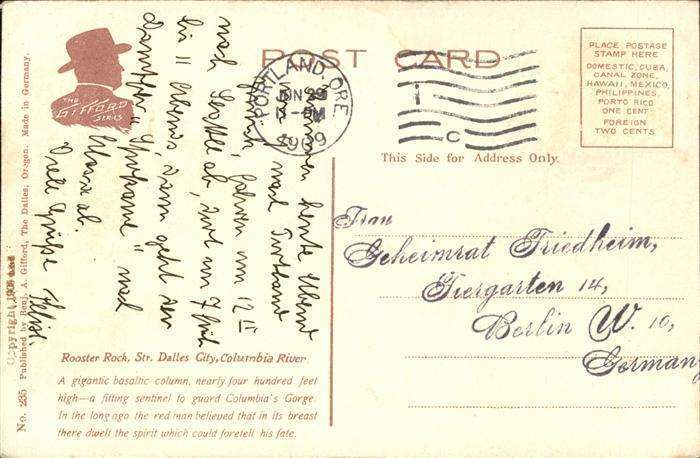 POST CARD
PORTLAND, ORE.
JUN 29
1909
C
PLACE POSTAGE
STAMP HERE
DOMESTIC, CUBA,
CANAL ZONE,
HAWAII, MEXICO,
PHILIPPINES,
PORTO RICO
ONE CENT
FOREIGN
TWO CENTS
This Side for Address Only.
THE
GIFFORD
SERIES
heute Abend
nach Portland
fahren um 12
nach Seattle ab, dort um 7 Uhr
bis 11 Abends, dann geht der
Dampfer "Spokane" nach
Alaska ab.
Viele Grüße
Frau
Geheimrat Friedheim,
Tiergarten 14,
Berlin W. 10,
Germany
Rooster Rock, Str. Dalles City, Columbia River.
A gigantic basaltic column, nearly four hundred feet
high—a fitting sentinel to guard Columbia's Gorge.
In the long ago the red man believed that in its breast
there dwelt the spirit which could foretell his fate.
No. 235 Published by Benj. A. Gifford, The Dalles, Oregon. Made in Germany.
Copyright